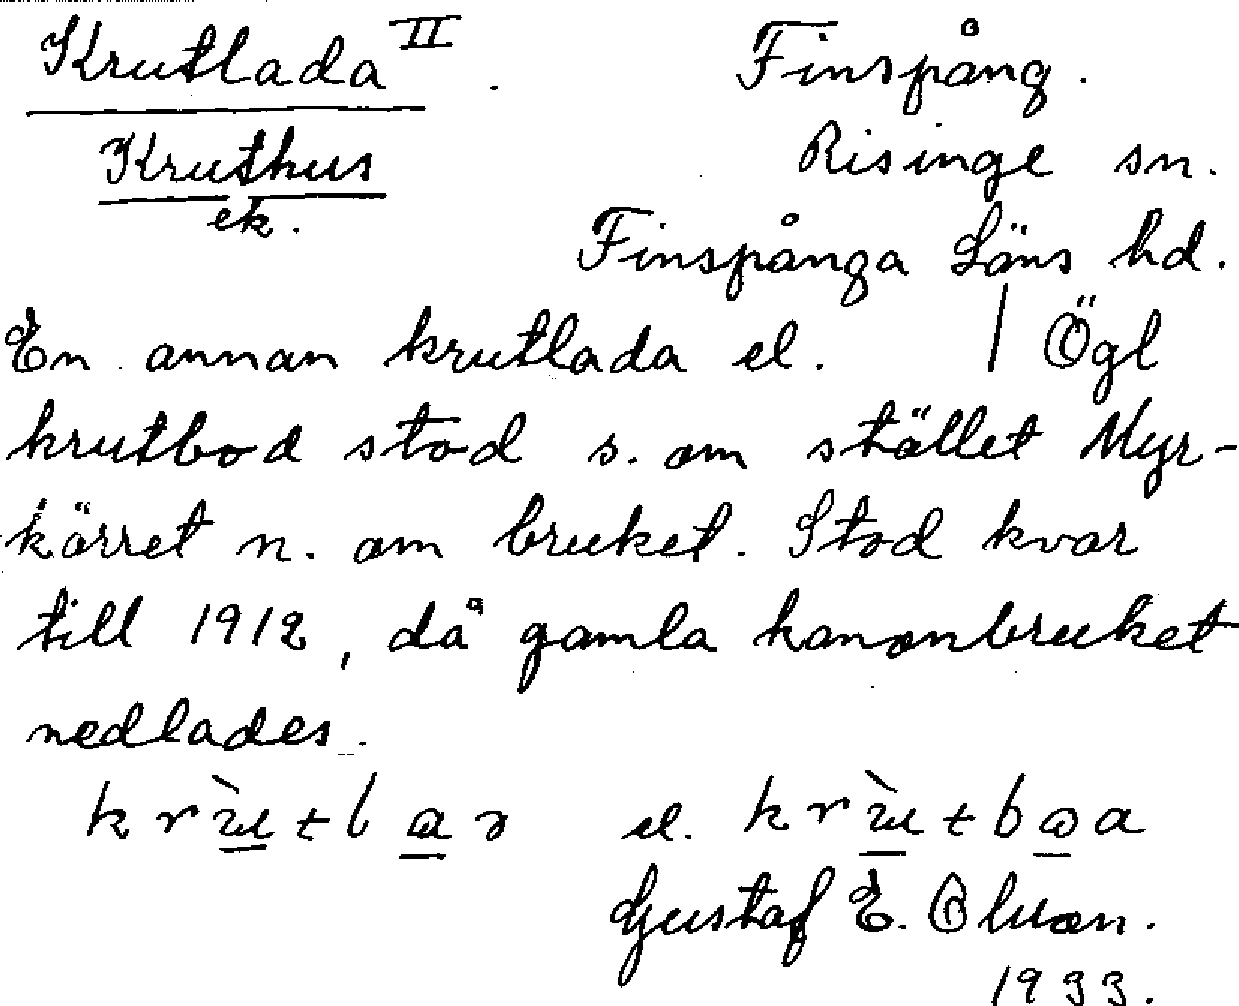 Krutlada II. Finspång.
Kruthus Risinge sn.
ek. Finspånga Läns hd.
En annan krutlada el. | Ögl
krutbod stod s. om stället Myr-
kärret n. om bruket. Stod kvar
till 1912, då gamla kanonbruket
nedlades.
el.
Gustaf E.
1933.